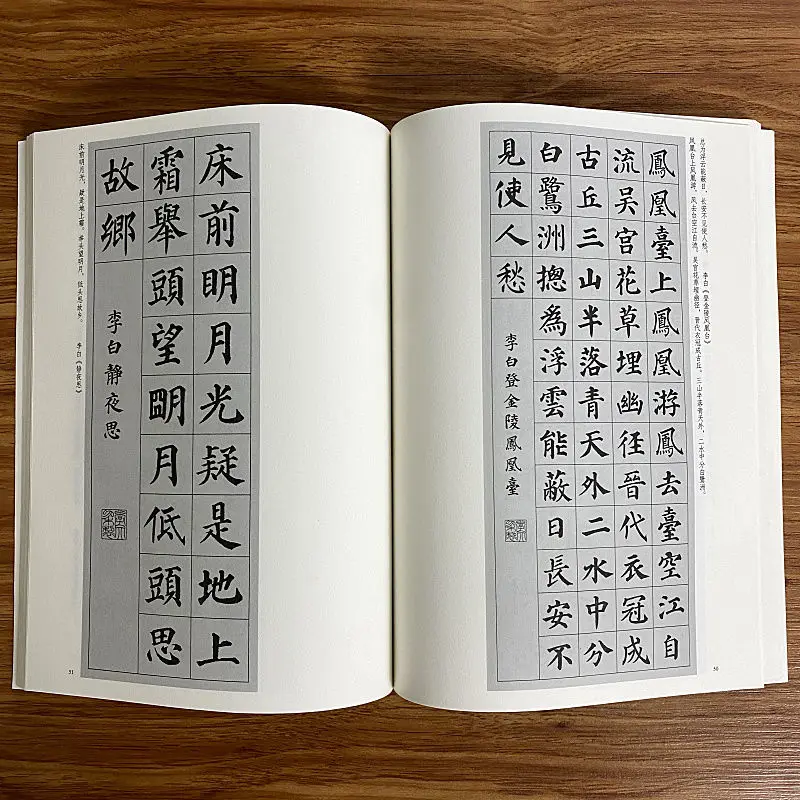 凤凰台上凤凰游，凤去台空江自流。吴宫花草埋幽径，晋代衣冠成古丘。三山半落青天外，二水中分白鹭洲。
总为浮云能蔽日，长安不见使人愁。 李白《登金陵凤凰台》
鳳凰臺上鳳凰游鳳去臺空江自
流吴宫花草埋幽径晉代衣冠成
古丘三山半落青天外二水中分
白鷺洲摠為浮雲能蔽日長安不
見使人愁
李白登金陵鳳凰臺
50
床前眀月光疑是地上
霜舉頭望朙月低頭思
故鄉
李白静夜思
床前明月光，疑是地上霜。举头望明月，低头思故乡。 李白《静夜思》
51